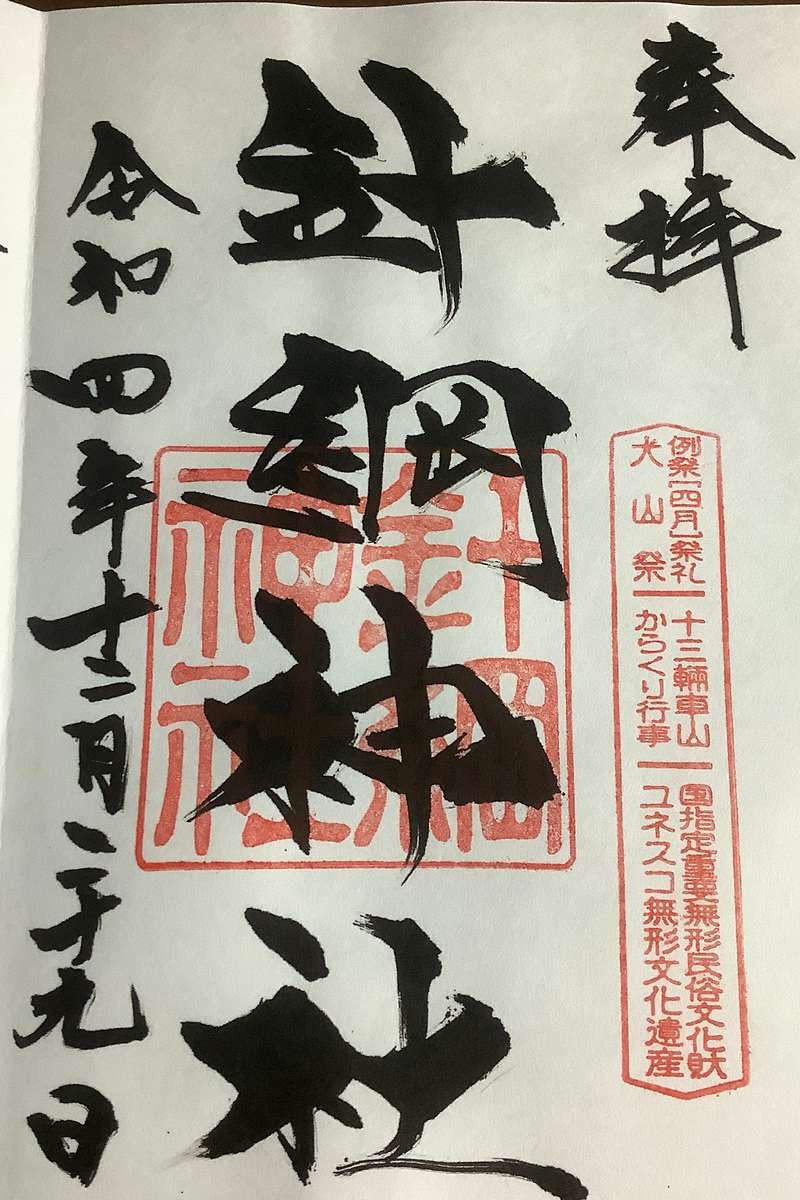 奉拝
例祭[四月]祭礼
犬山祭
十三輛車山
からくり行事
国指定重要無形民俗文化財
ユネスコ無形文化遺産
針綱神社
針綱
神社
令和四年十二月二十九日